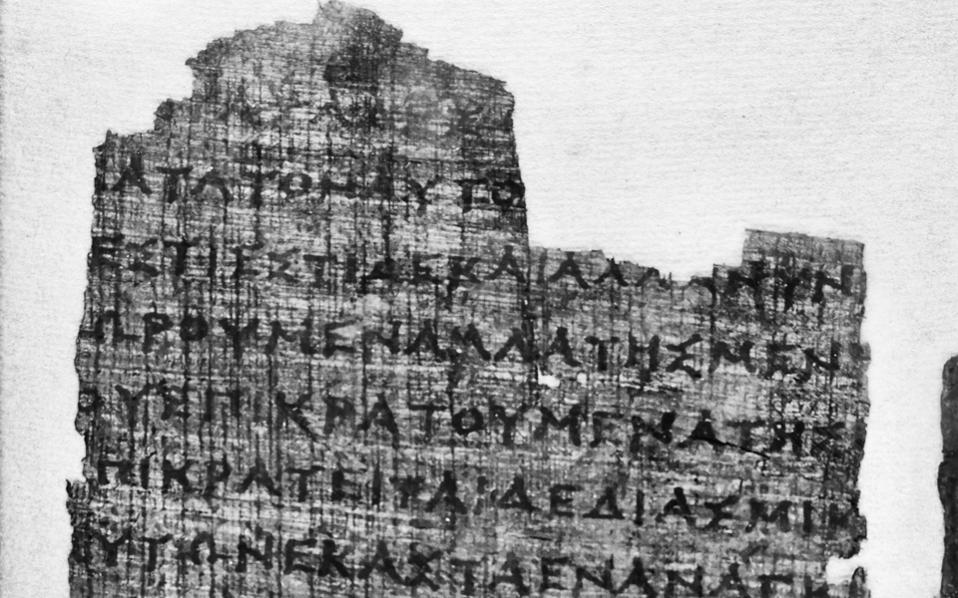 ΑΤΑΤΟΝΑΥΤΟ
ΕΣΤΙΕΣΤΙΔΕΚΑΙΑΛΛΑΝΥΝ
ΩΡΟΥΜΕΝΑΑΛΛΑΤΗΣΜΕΝ
ΟΥΕΠΙΚΡΑΤΟΥΜΕΝΑΤΗΣ
ΠΙΚΡΑΤΕΙΤΑΙΔΕΔΙΑΣΜΙΚ
ΥΤΩΝΕΚΑΣΤΑΕΝΑΝΑΓΚ